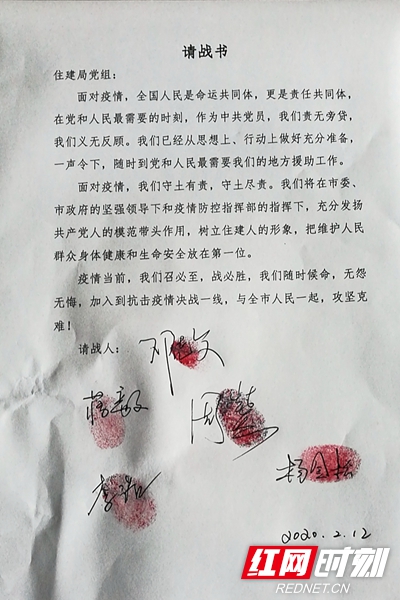 请战书
住建局党组：
面对疫情，全国人民是命运共同体，更是责任共同体，
在党和人民最需要的时刻，作为中共党员，我们责无旁贷，
我们义无反顾。我们已经从思想上、行动上做好充分准备，
一声令下，随时到党和人民最需要我们的地方援助工作。
面对疫情，我们守土有责，守土尽责。我们将在市委、
市政府的坚强领导下和疫情防控指挥部的指挥下，充分发扬
共产党人的模范带头作用，树立住建人的形象，把维护人民
群众身体健康和生命安全放在第一位。
疫情当前，我们召必至，战必胜，我们随时候命，无怨
无悔，加入到抗击疫情决战一线，与全市人民一起，攻坚克
难！
请战人：
2020.2.12
红网时刻
REDNET.CN